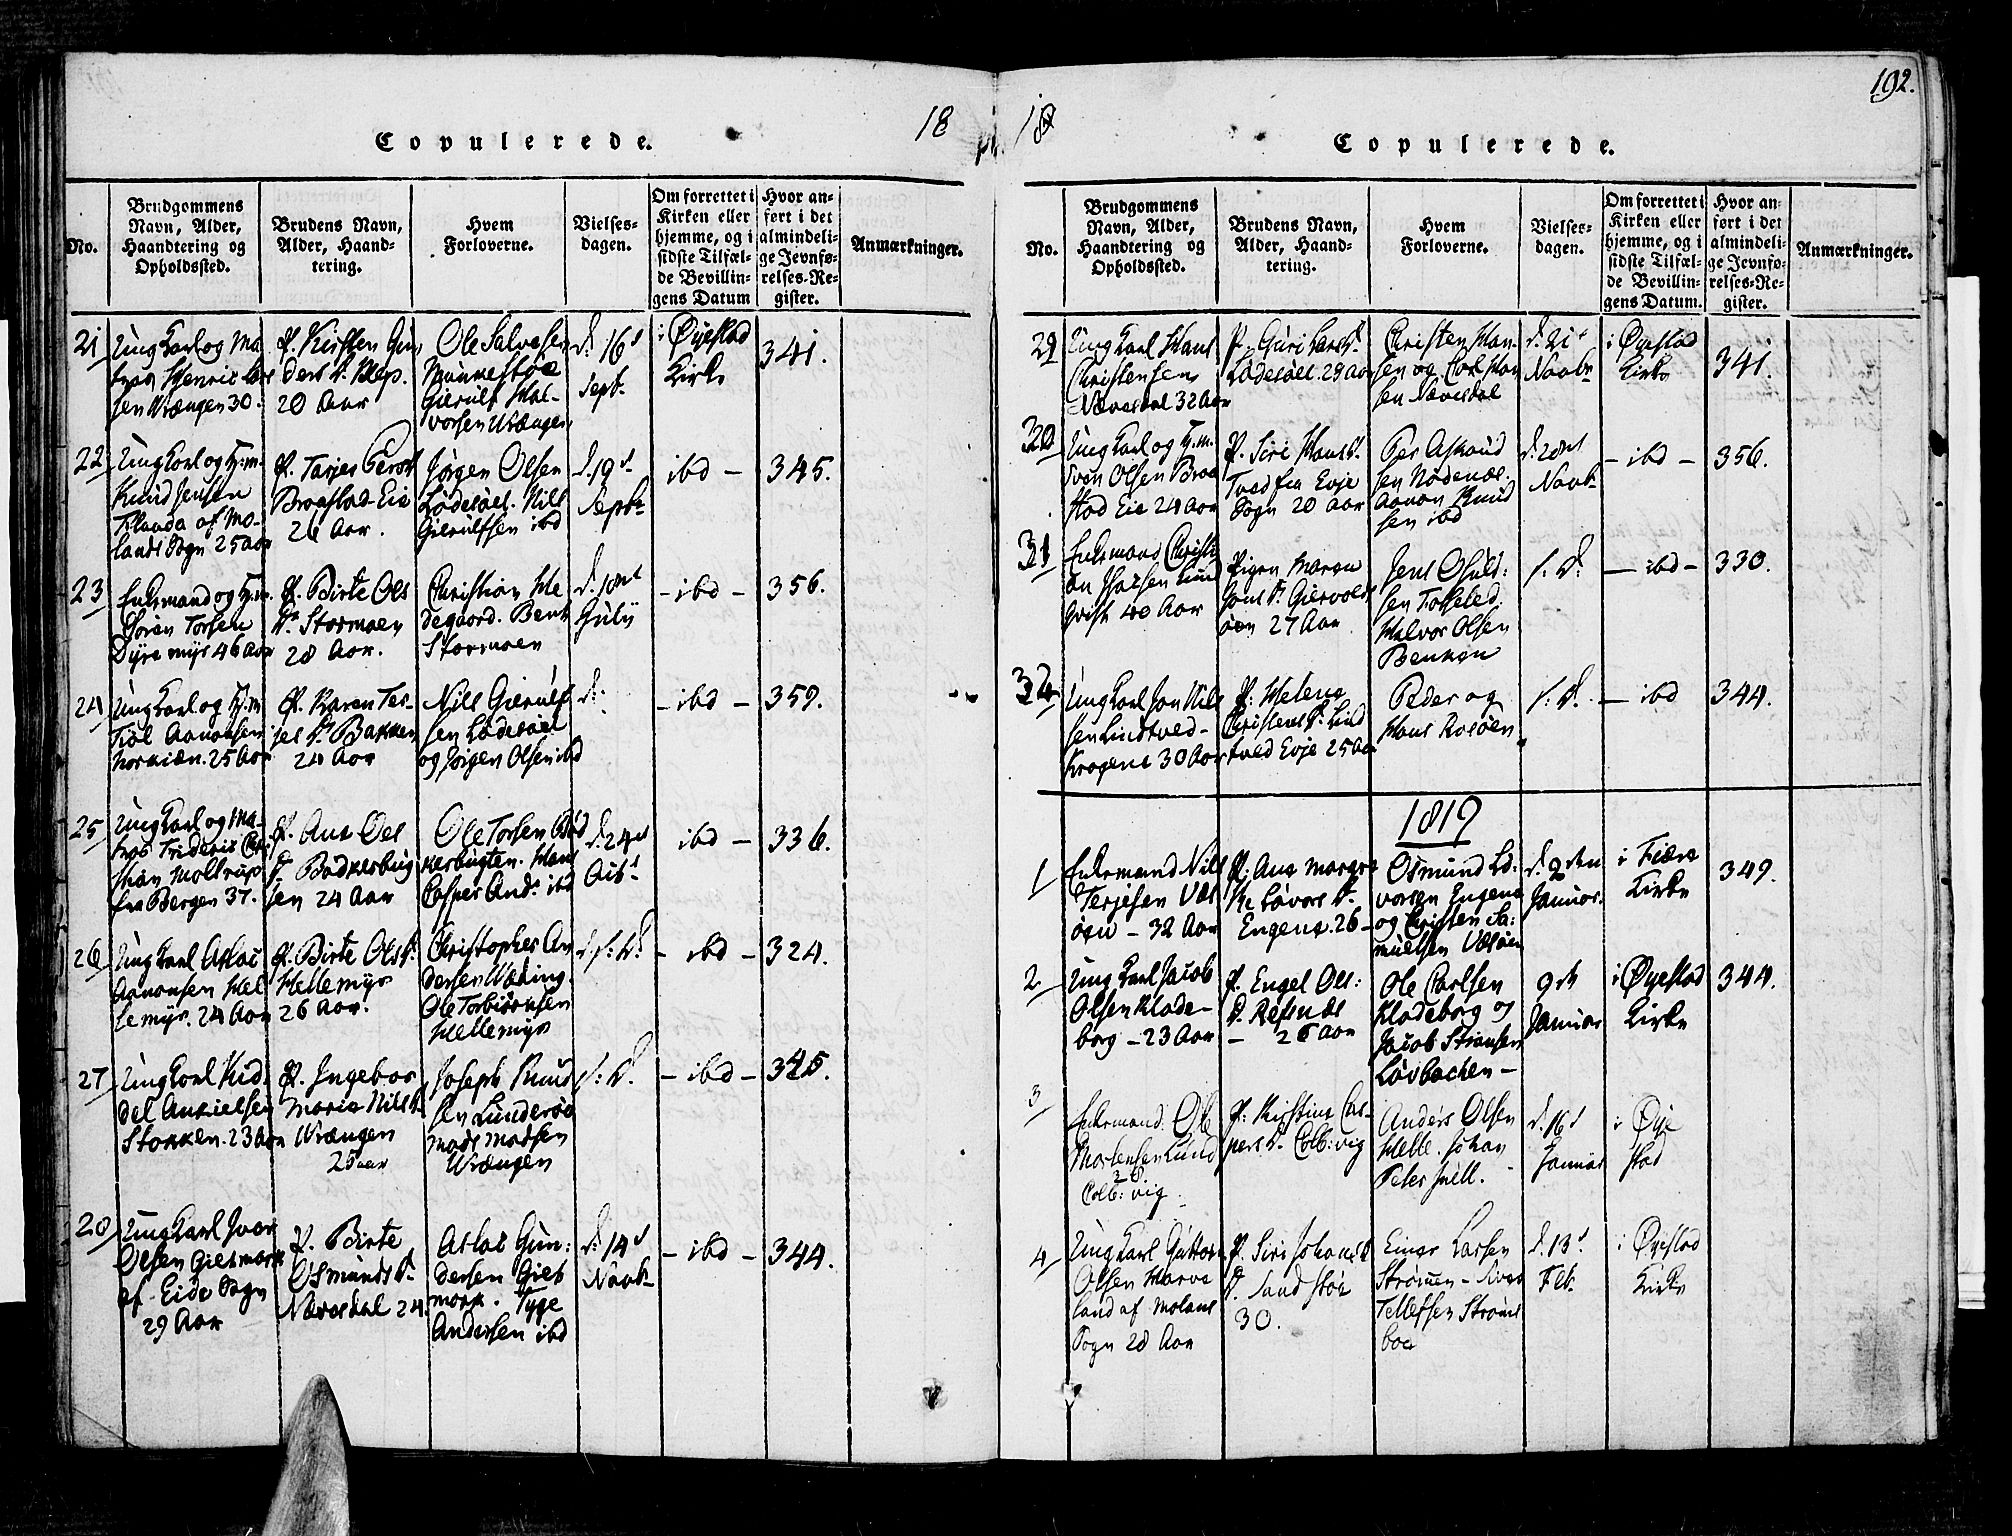 18
Copulerede.
No.
Brudgommens
Navn, Alder,
Haandtering og
Opholdssted.
Brudens Navn,
Alder, Haand-
tering.
Hvem
Forloverne.
Vielses-
dagen.
Om forrettet i
Kirken eller
hjemme, og i
sidste Tilfæl-
de Bevillin-
gens Datum
Hvor an-
ført i det
almindeli-
ge Jevnfø-
relses-Re-
gister.
Anmærkninger.
21
Ung Karl og Ma-
tros Henric Lar
sen Vrængen 30.
P. Kirsten Gun
ders D. Klep.
20 Aar
Ole Salvesen
Munkestøe
Gierulf Hal-
vorsen Vrængen
d. 16d
Sept.
i Øyestad
Kirke
341.
22
Ung Karl og H:m.
Knud Jensen
Flauda af Mo-
lands Sogn 25 Aar
P. Tarjer
Braastad Eie
26 Aar.
Jørgen Olsen
Lødesøel. Nils
Gierulfsen ibd
d. 19d
Septbr
ibd -
345.
23
Enkemand og H:m.
Søren Torsen
Dyremyr 46 Aar
P. Birte Ols
D. Stormoen
28 Aar.
Christian He
degaard. Bent
Stormoen
d.
July
- ibd -
356.
24
Ung Karl og H:m
Fiøl Aanonsen
25 Aar
P. Karen Ter-
jes D. Bakken
24 Aar
Nils Gierulf
sen Lødesøel
og Jørgen Olsen ibd
d:
- ibd -
359.
25
Ung Karl og Ma-
tros Frideric Chri
stian Moltrup
fra Bergen 37.
P. Ane Oles
D. Bødkerbug
ten 24 Aar
Ole Torsen Bød
kerbugten. Hans
Casper And. ibd
d. 24d
ibd -
336.
26
Ung Karl Aslac
Aanonsen Hel
lemyr. 24 Aar
P. Birte Ols D.
Hellemyr
26 Aar.
Christopher An
dersen Væding.
Ole Torbiørnsen
Hellemyr
s: D.
- ibd -
324.
27
Ung Karl Kid-
del Anzielsen
Stokken. 23 Aar
P. Ingebor
Maria Nils D.
Vrængen
25 aar
Joseph Knud
sen Lundersøe
Mads Madsen
Vrængen
s: D.
- ibd -
345.
28
Ung Karl Ivar
Olsen Gietmark
af Eide Sogn
29 Aar
P. Birte
Osmunds D.
Næresdal 24.
Aslac Gun:
dersen Giet
mark. Tyge
Andersen ibd
d: 14d
Novbr
- ibd -
344.
192.
18
Copulerede.
No.
Brudgommens
Navn, Alder,
Haandtering og
Opholdssted.
Brudens Navn,
Alder, Haand-
tering.
Hvem
Forloverne.
Vielses-
dagen.
Om forrettet i
Kirken eller
hjemme, og i
sidste Tilfæl-
de Bevillin-
gens Datum.
Hvor an-
ført i det
almindeli-
ge Jevnfø-
relses-Re-
gister.
Anmærkninger.
29
Ung Karl Hans
Christensen
Nævesdal 32 Aar
P. Guri Lars D.
Lødesøel. 29 Aar
Christen Han-
sen og Carl Han
sen Nævesdal
d. 21d
Novbr
i Øyestad
Kirke
341.
30
Ung Karl og H:m.
Sven Olsen Braa
stad Eie 24 Aar
P. Siri Hans D.
Tved fra Evje
Sogn 20 aar
Per Asknud
sen Nødenæs.
Aanon Knud
sen ibd
Novbr
- ibd -
356.
31
Enkemand Christi
an
qvist 40 Aar
Pigen Maren
Jens D. Giervolds
øen 27 Aar
Jens Osuld:
sen Tosseled.
Halvor Olsen
Benken
s: D:
- ibd -
330.
32
Ung Karl Jon Nils
sen Lindtved-
Krogene 30 Aar
P. Helena
Christens D. Lind
tved Evje 25 Aar
Peder og
Hans Rosøen
s: D.
- ibd
344.
1819
1
Enkemand Nils
Terjesen Væs
øen - 32 Aar
P. Ana Margre
the Lovors D.
Engene. 26-
Osmund Lo:
vorsen Engene
og Christen Sa:
muelsen Væsøen
d. 2den
Januar.
i Fiære
Kirke
349.
2
Ung Karl Jacob
Olsen Klode-
borg - 23 Aar
P. Engel Ols:
D. Refsnæs
- 26 aar
Ole Carlsen
Klodeborg og
Jacob Stiansen
Løvbachen -
9de
Januar
i Øyestad
Kirke
344.
3
Enkemand Ole
Mortensen Lund
38
Colb: vig.
P: Kirstine Cas-
pers D. Colb:vig
Anders Olsen
Helle. Johan
Peter Juell.
d. 16d
Januar
i Øye
stad
4
Ung Karl Guttorm
Olsen Harve
land af Molans
Sogn 28 Aar
P. Siri Johans
D. Sandstøe
30.
Einer Larsen
Strømmen - Siver
Tellefsen Strøms
boe
d. 13d
Feb.
i Øyestad
Kirke